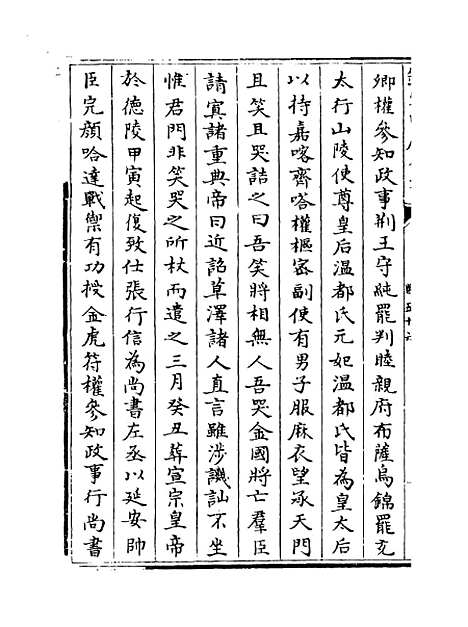 卿權參知政事荆王守純罷判睦親府布薩烏錦罷充
太行山陵使尊皇后温都氏元妃温都氏皆為皇太后
以持嘉喀齊喀權樞密副使有男子服麻衣望承天門
且笑且哭詰之曰吾笑將相無人吾哭金國將亡羣臣
請寘諸重典帝曰近詔草澤諸人直言雖涉譏訕不坐
惟君門非笑哭之所杖而遣之三月癸丑葬宣宗皇帝
於德陵甲寅起復致仕張行信為尚書左丞以延安帥
臣完顔哈達戰禦有功授金虎符權參知政事行尚書